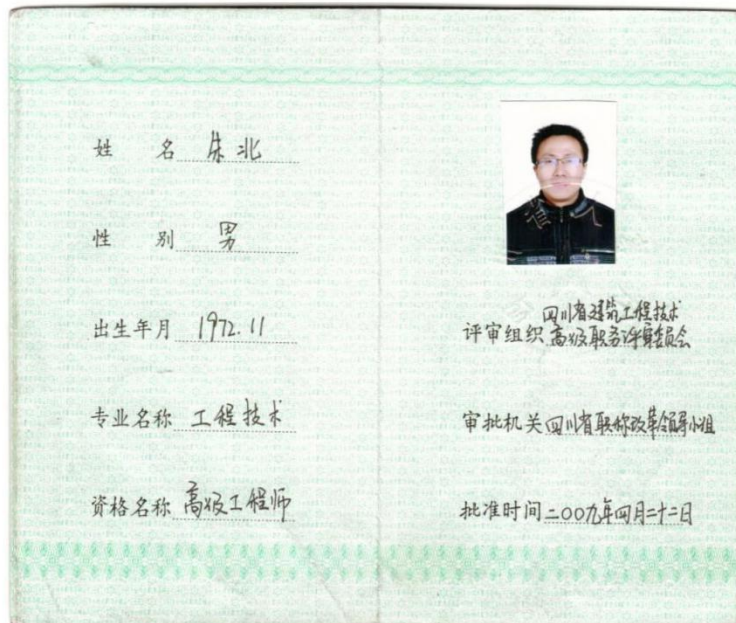 姓 名 朱北
性 别 男
出生年月 1972.11
专业名称 工程技术
资格名称 高级工程师
四川省建筑工程技术
评审组织 高级职务评审委员会
审批机关 四川省职称改革领导小组
批准时间 二00九年四月二十二日